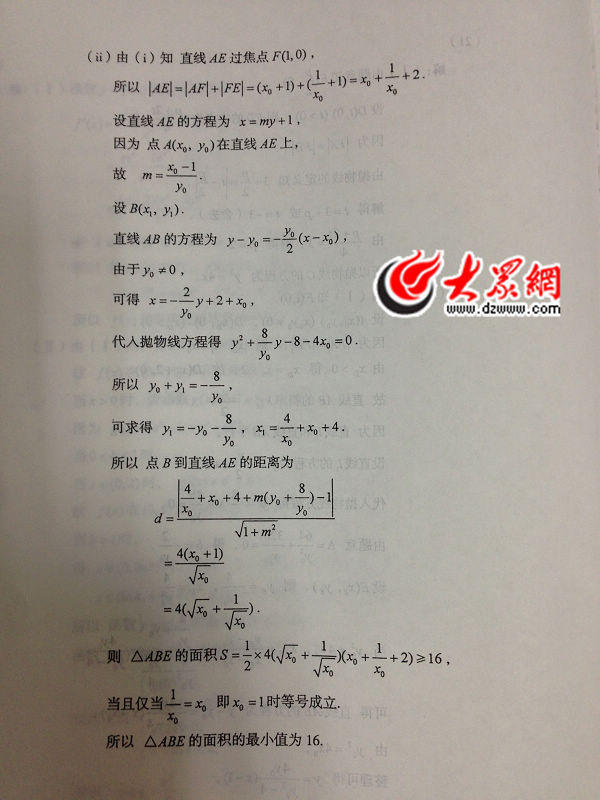 (ii) 由 (i) 知 直线 AE 过焦点 F(1,0) ,
所以 |AE|=|AF|+|FE|=(x₀+1)+(1/x₀+1)=x₀+1/x₀+2.
设直线 AE 的方程为 x=my+1 ,
因为 点 A(x₀, y₀) 在直线 AE 上,
故 m=(x₀-1)/y₀.
设 B(x₁, y₁) .
直线 AB 的方程为 y-y₀=-y₀/2(x-x₀) ,
由于 y₀≠0 ,
大眾網
www.dzwww.com
可得 x=-2/y₀ y+2+x₀ ,
代入抛物线方程得 y²+8/y₀ y-8-4x₀=0 .
所以 y₀+y₁=-8/y₀ ,
可求得 y₁=-y₀-8/y₀ , x₁=4/x₀+x₀+4 .
所以 点 B 到直线 AE 的距离为
d=|4/x₀+x₀+4+m(y₀+8/y₀)-1|/√(1+m²)
=4(x₀+1)/√x₀
=4(√x₀+1/√x₀) .
则 △ABE 的面积 S=1/2×4(√x₀+1/√x₀)(x₀+1/x₀+2)≥16 ,
当且仅当 1/x₀=x₀ 即 x₀=1 时等号成立.
所以 △ABE 的面积的最小值为 16.